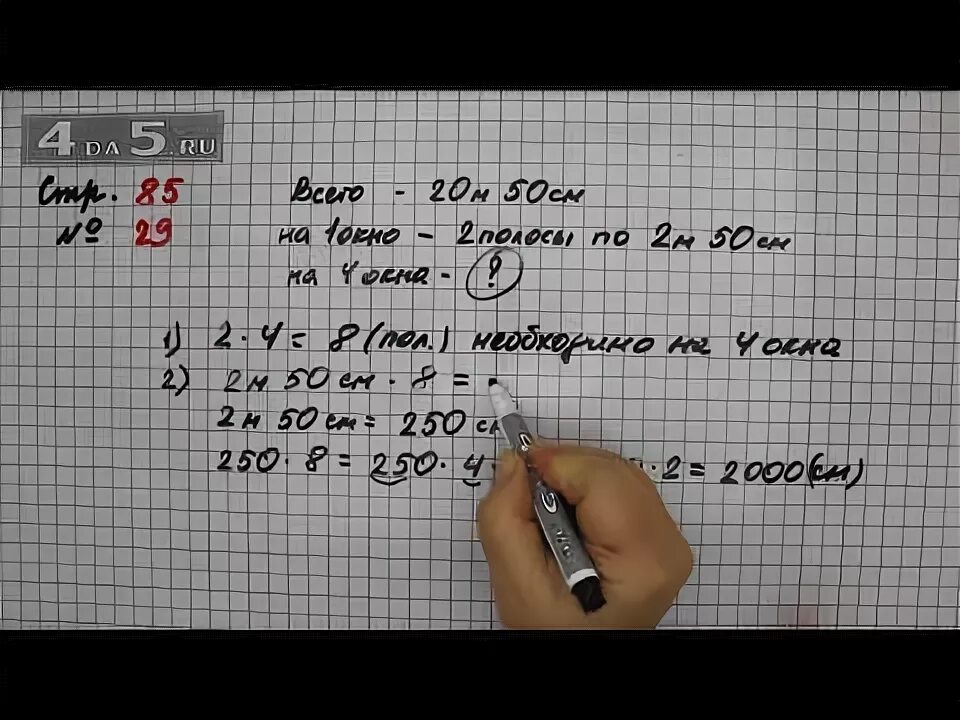 4 DA 5 .RU
Стр. 85
№ 29
Всего - 20м 50см
на 1окно - 2полосы по 2м 50см
на 4окна - ?
1) 2 · 4 = 8 (пол.) необходимо на 4 окна
2) 2м 50 см · 8 =
2м 50 см = 250
250 · 8 = 250 · 4 · 2 = 2000(см)